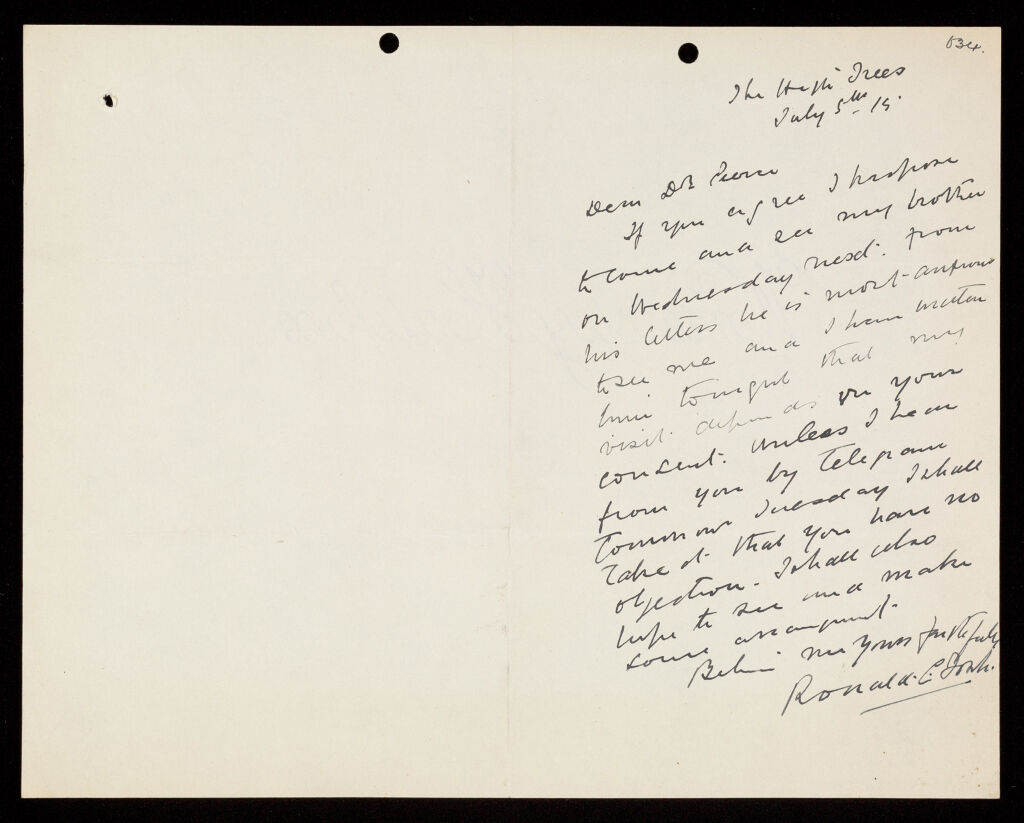 034.
The High Trees
July 5th 15.
Dear Dr Pierce
If you agree I propose
to come and see my brother
on Wednesday next. From
his letters he is most anxious
to see me and I have written
him tonight that my
visit depends on your
consent. Unless I hear
from you by Telegram
Tomorrow Tuesday I shall
Take it that you have no
objection. I shall also
hope to see and make
some arrangement.
Believe me Yours faithfully
Ronald. C.